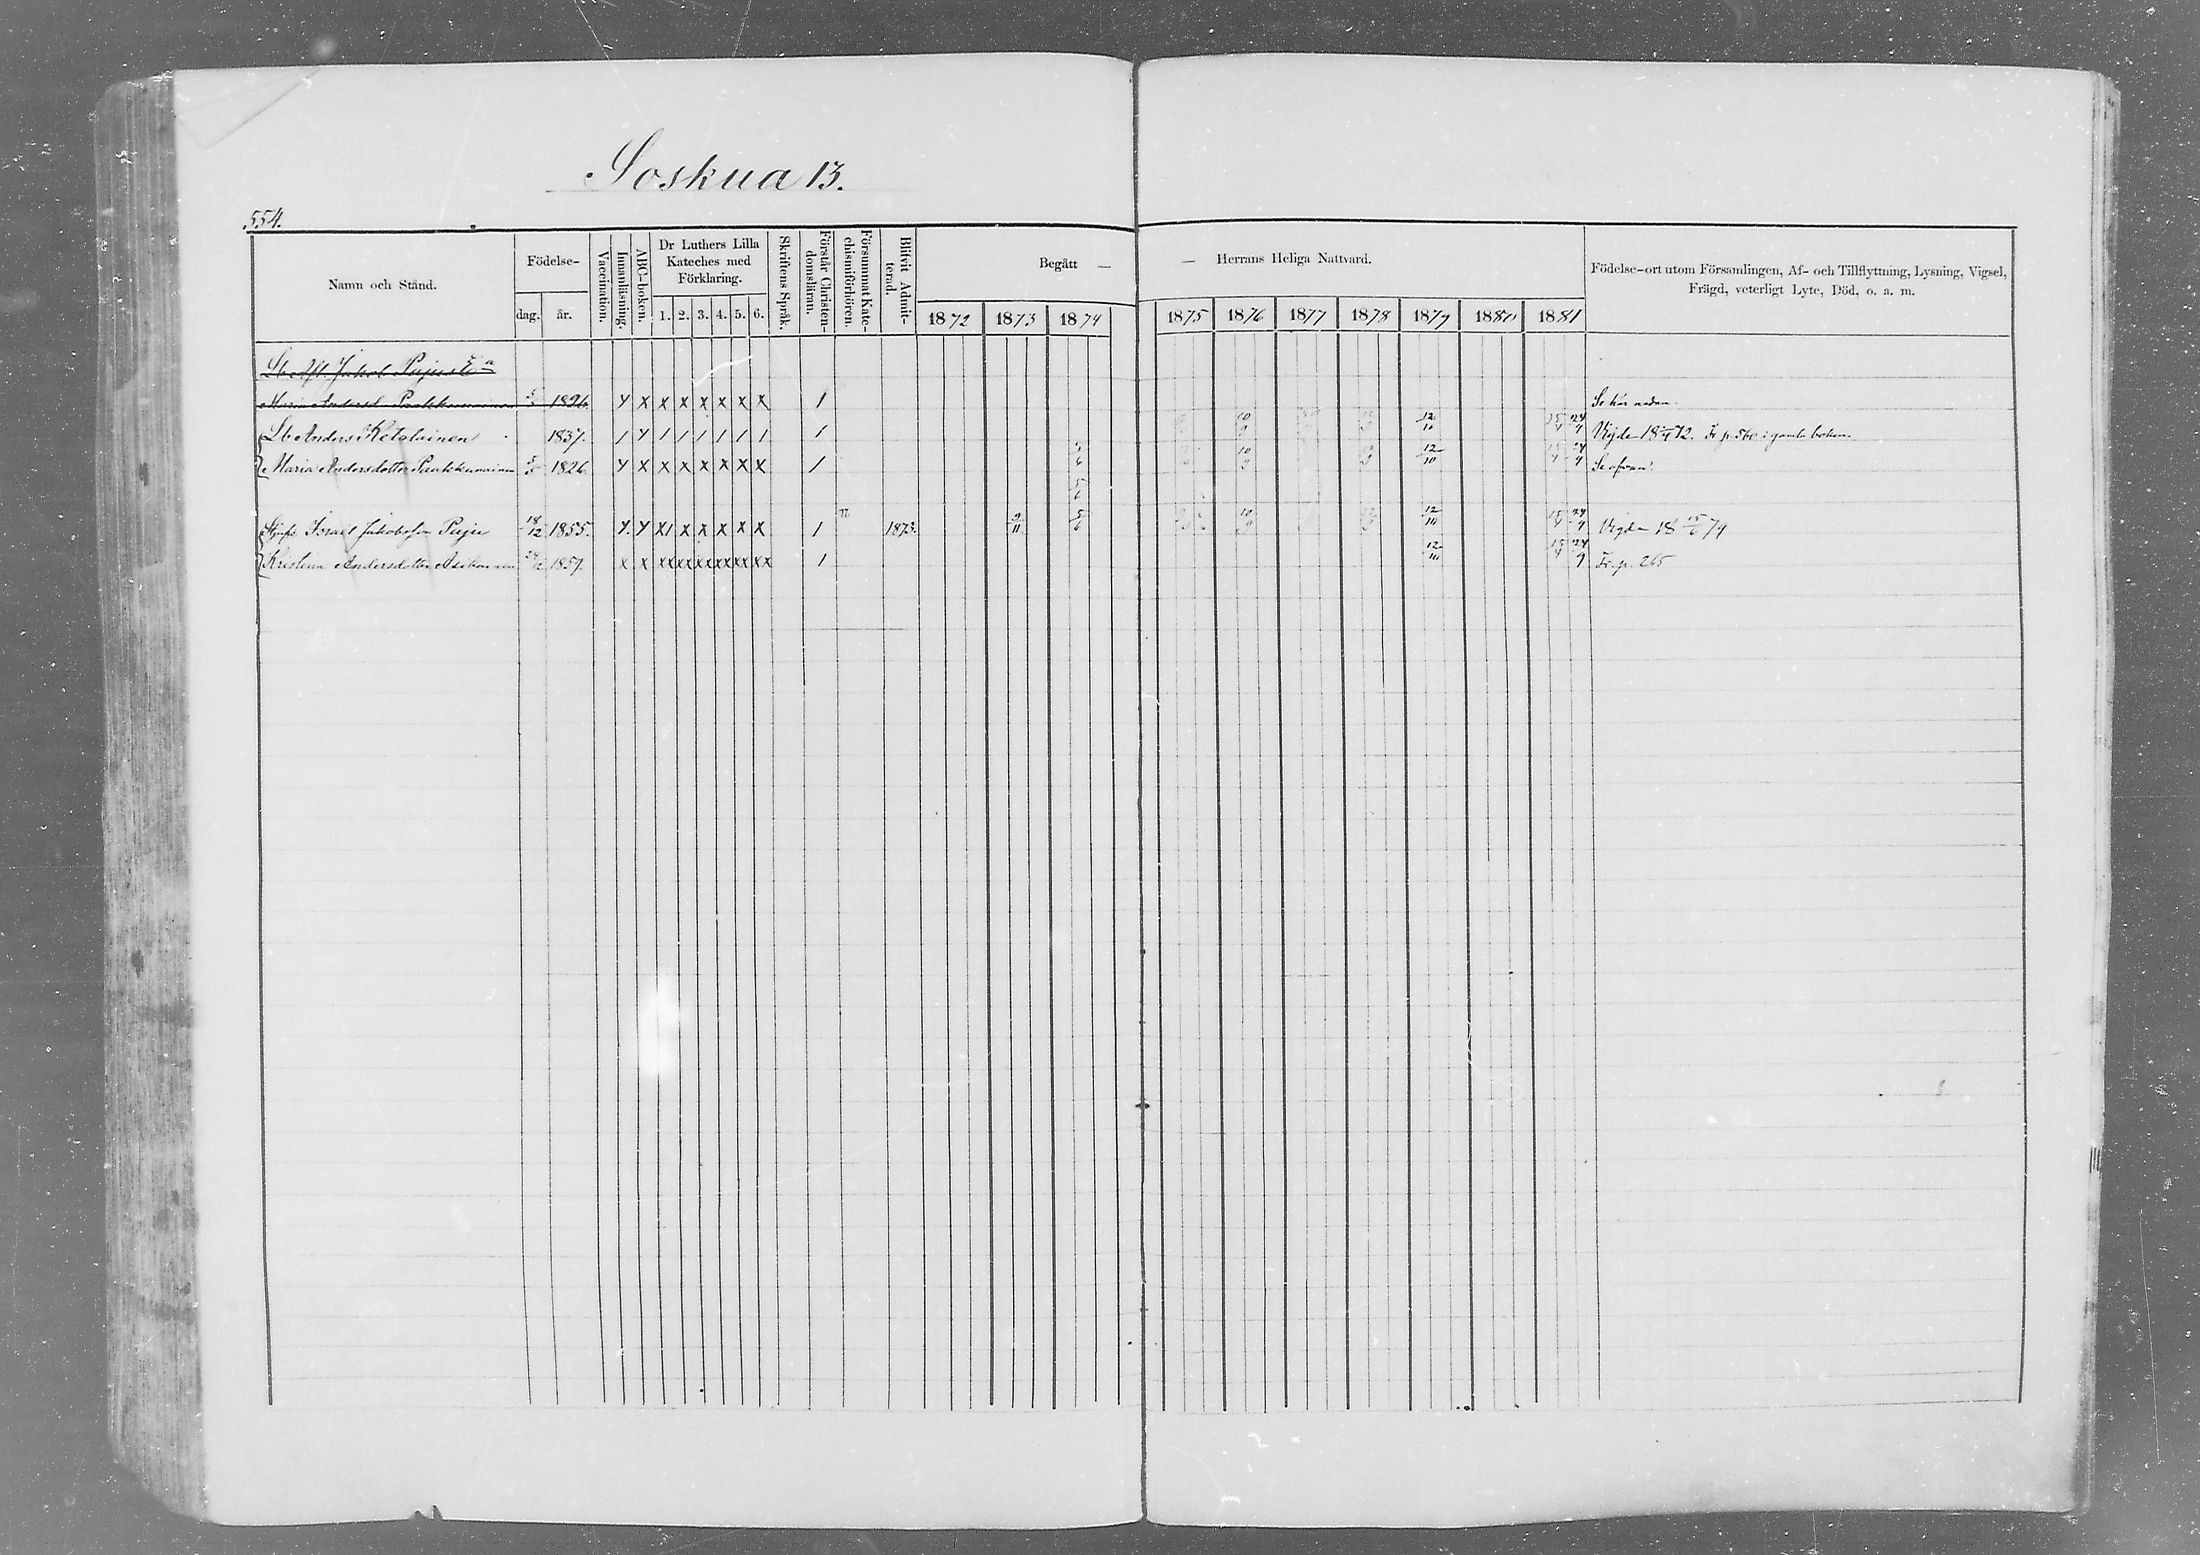 Soskua 13.
554.
Namn och Stånd.
Födelse-
dag. år.
Vaccination.
Innanläsning.
ABC-boken.
Dr Luthers Lilla Kateches med Förklaring.
1. 2. 3. 4. 5. 6.
Skriftens Språk.
Förstår Christen-domsläran.
Försummat Kate-chismiförhören.
Blifvit Admit-terad.
Begått — — Herrans Heliga Nattvard.
1872 1873 1874 1875 1876 1877 1878 1879 1880 1881
Födelse-ort utom Församlingen, Af- och Tillflyttning, Lysning, Vigsel,
Frägd, veterligt Lyte, Död, o. a. m.
Jakob
Maria Andersd. Paakkunainen 1826. y x x x x x x x 1 Se här nedan.
Lb Anders Ketolainen 1837. / y / / / / / / 1 12/10 15/4 24/9 Vigde 18 72. Fr p. 560 i gamla boken.
Maria Andersdotter Paakkunainen 1826. y x x x x x x x 1 10/9 12/10 15/4 24/9 Se ofvan.
Israel Jakobsson Puju 18/12 1855. y. y x1 x x x x x 1 1873. 9/11 5/6 10/9 12/10 15/4 24/9 Vigde 18 15/6 79
Kristina Andersdotter 1857. x x xx xx xx xx xx xx 1 12/10 15/4 24/9 Fr. p. 265